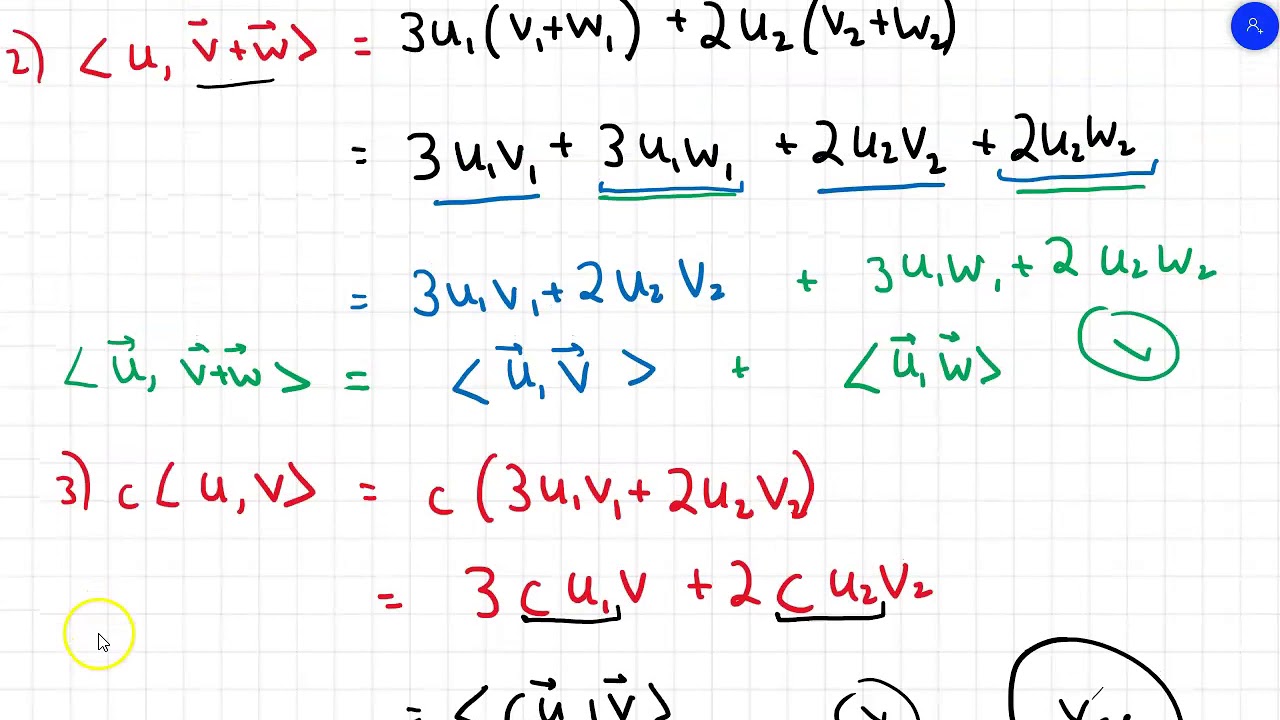 2) ⟨u, v⃗+w⃗⟩ = 3u₁(v₁+w₁) + 2u₂(v₂+w₂)
= 3u₁v₁ + 3u₁w₁ + 2u₂v₂ + 2u₂w₂
= 3u₁v₁ + 2u₂v₂ + 3u₁w₁ + 2u₂w₂
⟨u⃗, v⃗+w⃗⟩ = ⟨u⃗, v⃗⟩ + ⟨u⃗, w⃗⟩ ✓
3) c⟨u, v⟩ = c(3u₁v₁ + 2u₂v₂)
= 3cu₁v + 2cu₂v₂
= ⟨cu⃗, v⃗⟩ ✓